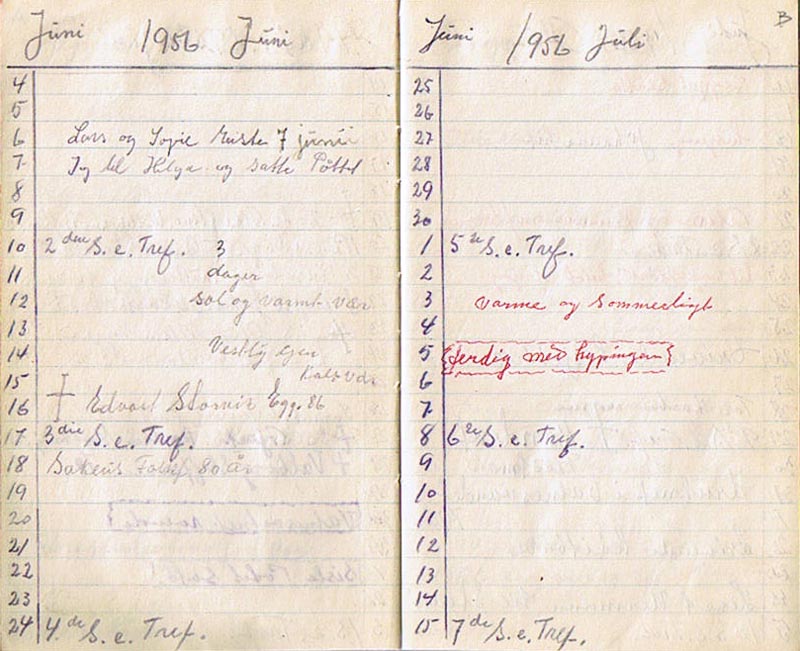 Juni 1956 Juni
4
5
6 Lars og Sofie 7 junii
7 Jeg til Helga og satte Pottet
8
9
10 2den S. e. Tref. 3
11 dager
12 sol og varmt vær
13
14 Vestly igjen
15
16 † Edvart Egg. 86
17 3die S. e. Tref.
18 80 år
19
20
21
22
23
24 4.de S. e. Tref.
Juni 1956 Juli
B
25
26
27
28
29
30
1 5te S. e. Tref.
2
3 varme og sommerligt
4
5 ferdig med hypingen
6
7
8 6te S. e. Tref.
9
10
11
12
13
14
15 7de S. e. Tref.